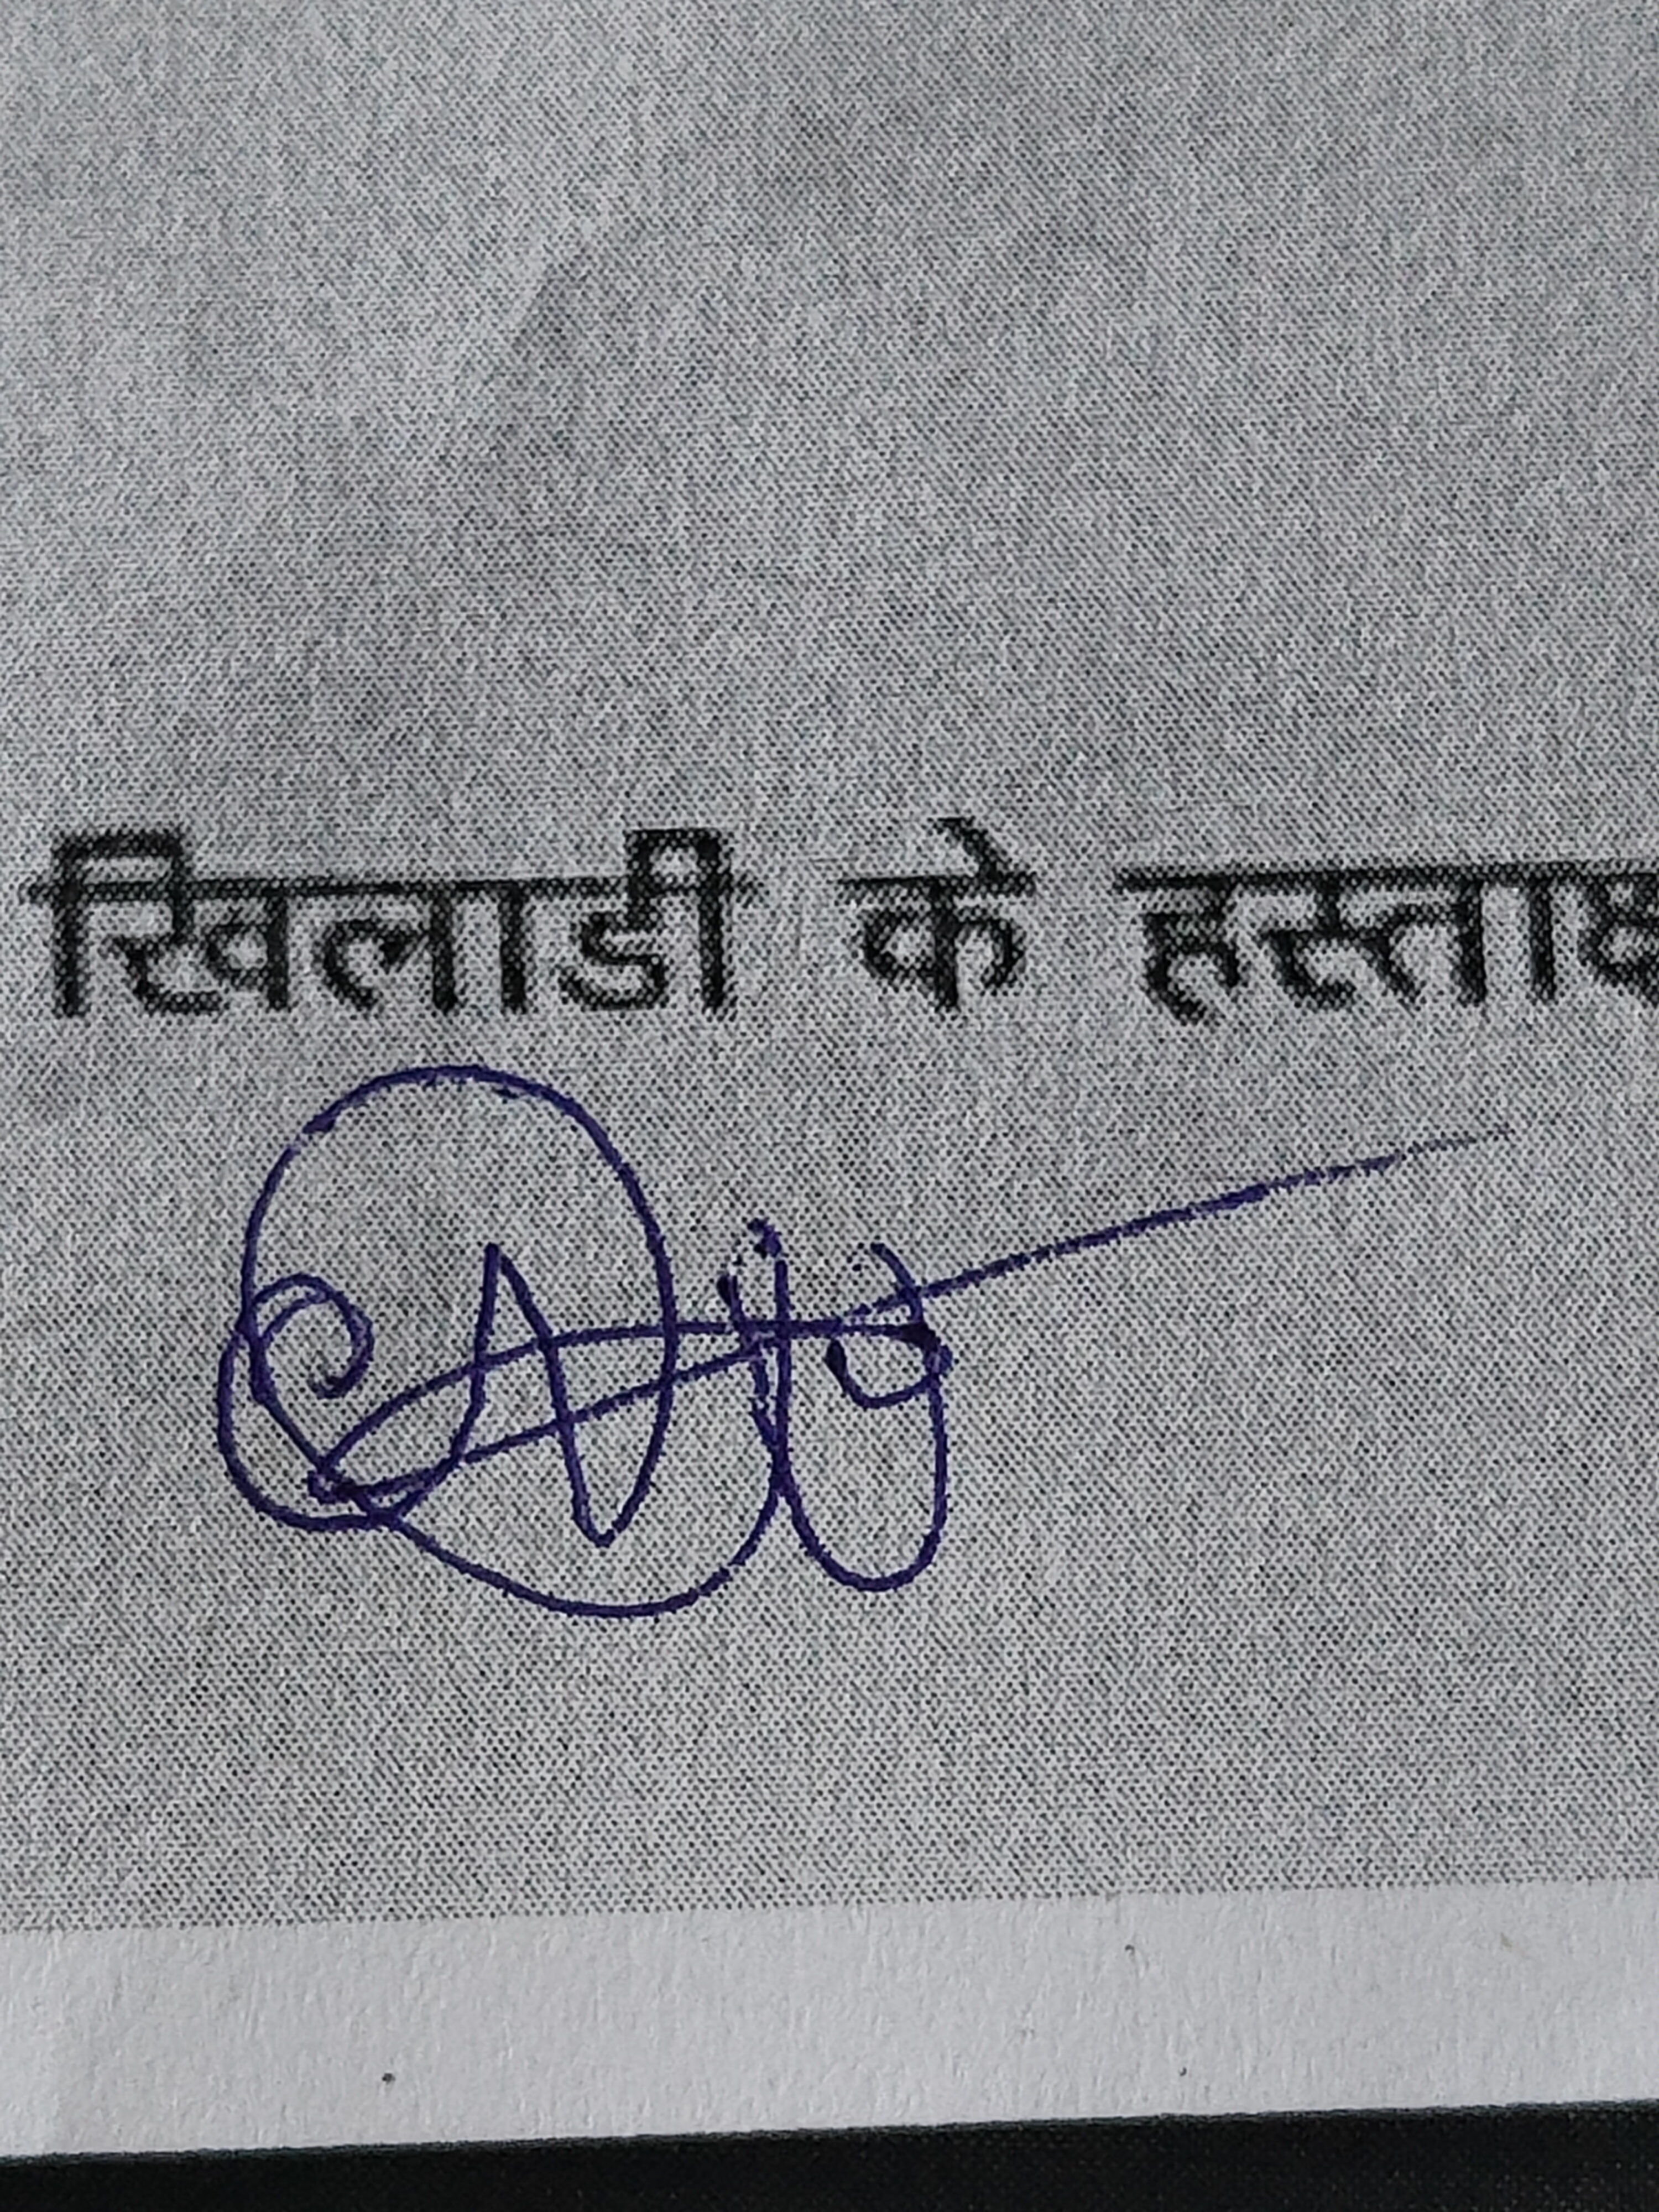 खिलाडी के हस्ताक्ष